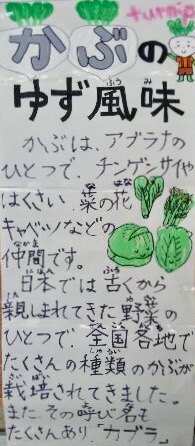 turnip
かぶの
ゆず風味
ふうみ
かぶは、アブラナの
ひとつで、チンゲンサイや
はくさい、菜の花、
キャベツなどの
仲間です。
日本では古くから
親しまれてきた野菜の
ひとつで、全国各地で
たくさんの種類のかぶが
栽培されてきました。
また、その呼び名も
たくさんあり「カブラ」